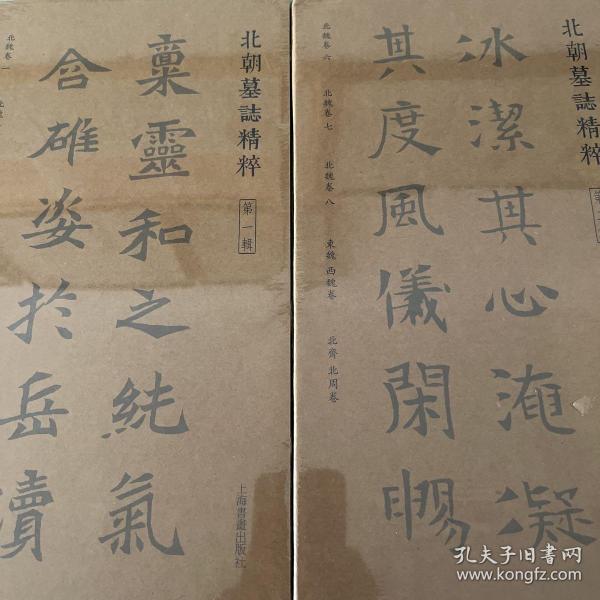 北朝墓誌精粹
第一輯
稟靈和之純氣
含雄姿於岳瀆
北魏卷一
上海書畫出版社
北朝墓誌精粹
冰潔其心淹凝
其度風儀閑暢
北魏卷六
北魏卷七
北魏卷八
東魏 西魏卷
北齊 北周卷
孔夫子旧书网
www.kongfz.com